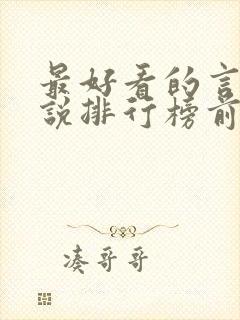 最好看的言
說排行榜前
凑哥哥